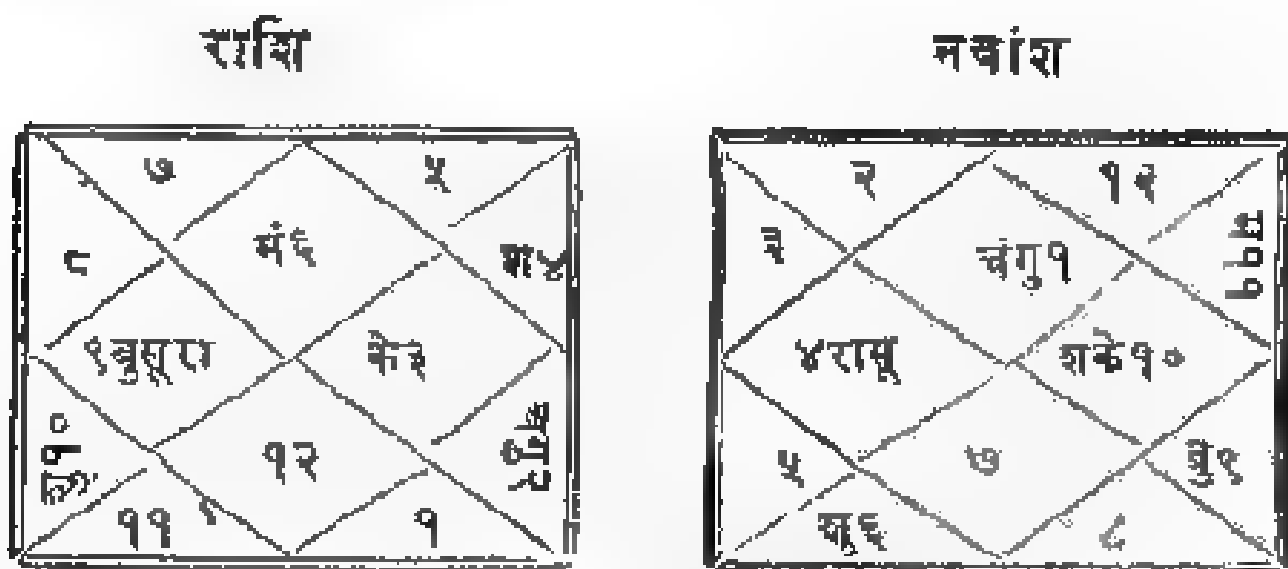 राशि
नवांश
७
५
मं६
८
श४
९बुसूरा
के३
शु१०
१२
चंगु२
११
१
२
१२
३
चंगु१
मं११
४रासू
शके१०
५
७
बु९
शु६
८